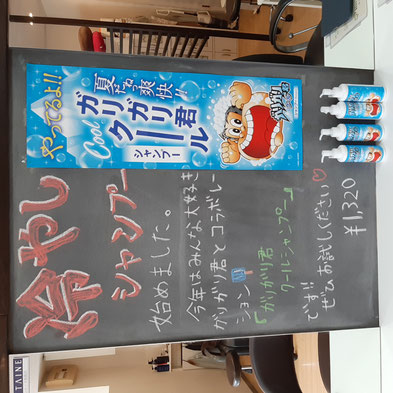 やってるよ!!
夏だ!ねっ爽快!!
Cool
ガリガリ君
クール
シャンプー
ガリガリ君
冷やし
シャンプー
始めました。
今年はみんな大好き
ガリガリ君とコラボレー
ション
「ガリガリ君
クールシャンプー」
です!!
ぜひお試しください♡
¥1,320
TAINE